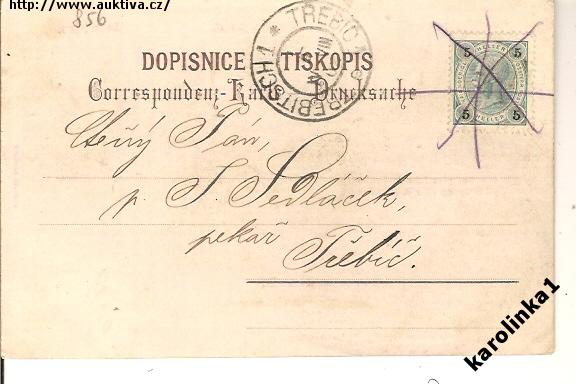 http://www.auktiva.cz/
856
DOPISNICE TISKOPIS
Correspondenz-Karte Drucksache
* TŘEBÍČ 1 * TREBITSCH 1
VIII
5 HELLER 5
5 HELLER 5
Ctěný Pán,
p. J Sedláček,
pekař
Třebíč.
karolinka1